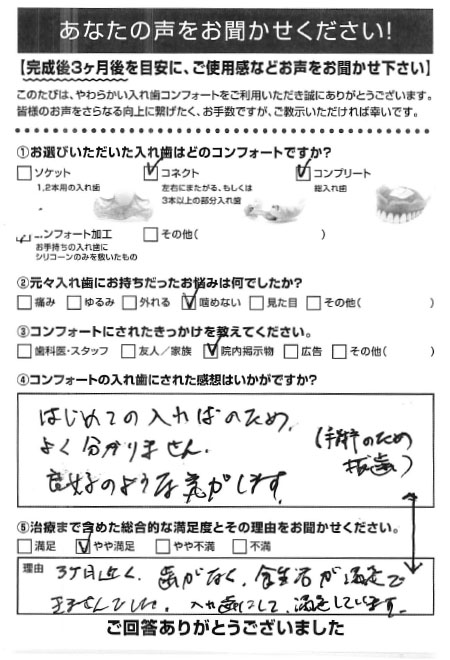 あなたの声をお聞かせください!
【完成後3ヶ月後を目安に、ご使用感などお声をお聞かせ下さい】
このたびは、やわらかい入れ歯コンフォートをご利用いただき誠にありがとうございます。
皆様のお声をさらなる向上に繋げたく、お手数ですが、ご教示いただければ幸いです。
①お選びいただいた入れ歯はどのコンフォートですか?
ソケット コネクト コンプリート
1,2本用の入れ歯 左右にまたがる、もしくは 総入れ歯
3本以上の部分入れ歯
ンフォート加工 その他( )
お手持ちの入れ歯に
シリコーンのみを敷いたもの
②元々入れ歯にお持ちだったお悩みは何でしたか?
痛み ゆるみ 外れる 噛めない 見た目 その他( )
③コンフォートにされたきっかけを教えてください。
歯科医・スタッフ 友人/家族 院内掲示物 広告 その他( )
④コンフォートの入れ歯にされた感想はいかがですか?
はじめての入ればのため、
よく分かりません。
(手術のため
抜歯)
良好のような気がします。
⑤治療まで含めた総合的な満足度とその理由をお聞かせください。
満足 やや満足 やや不満 不満
理由 3ヶ月近く、歯がなく、食生活が満足で
きませんでした。入れ歯にして、満足しています。
ご回答ありがとうございました